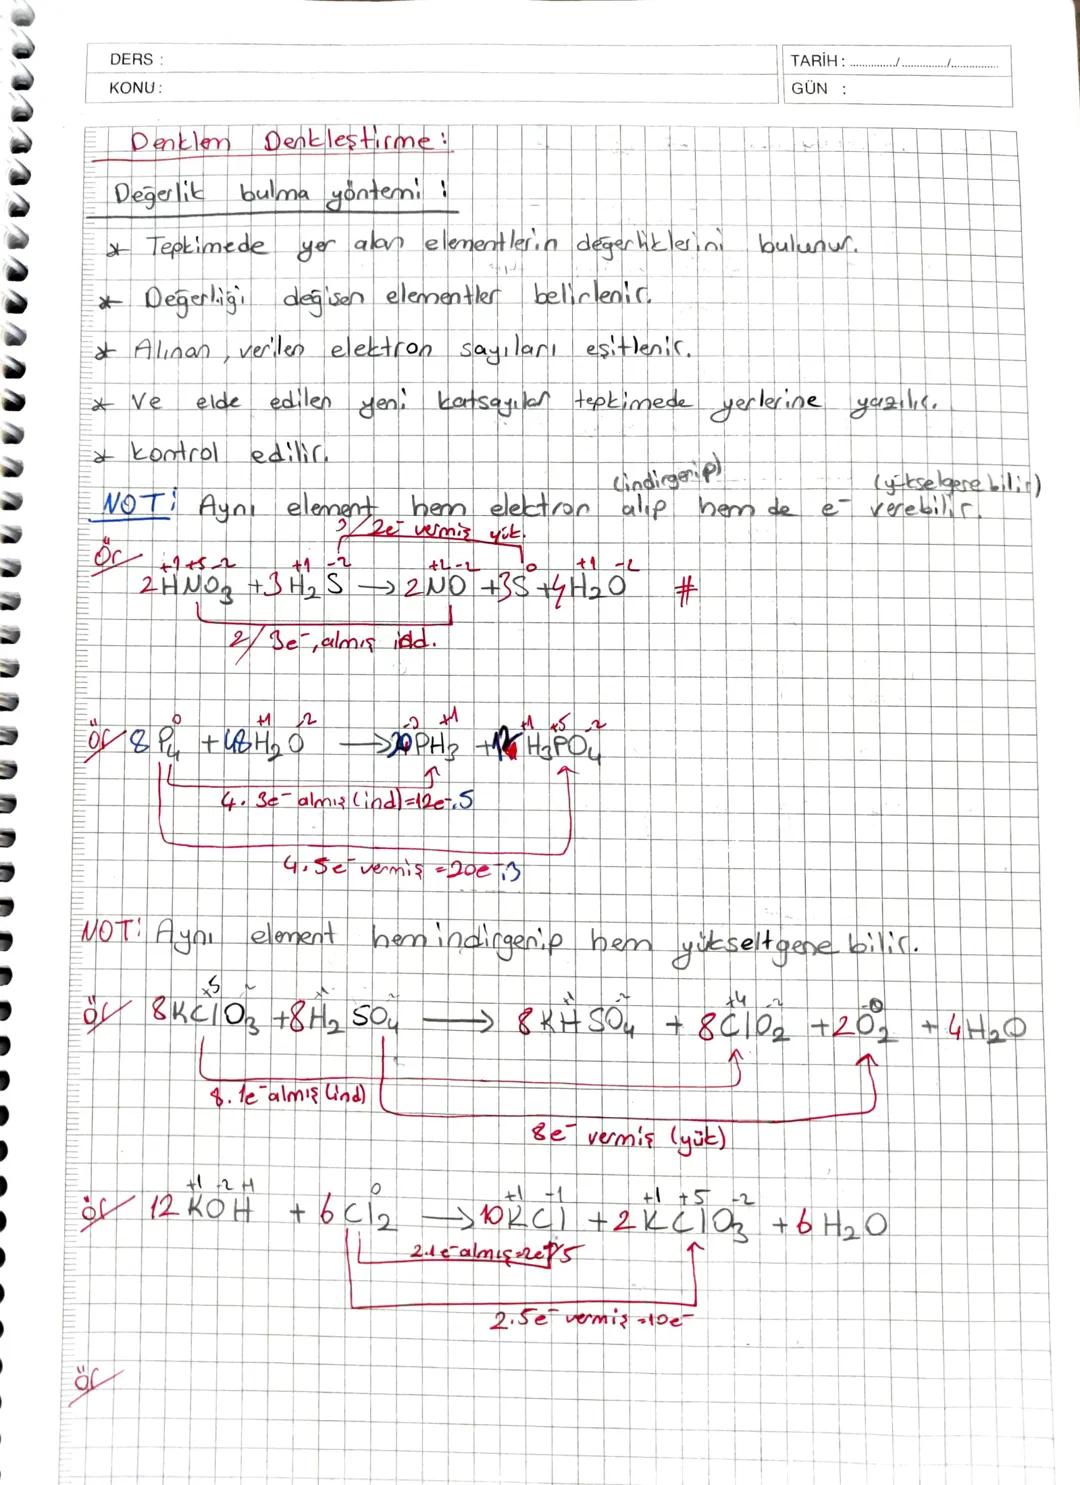 DERS :
TARİH : ............/............/............
KONU :
GÜN :
Denklem Denkleştirme :
Değerlik bulma yöntemi :
* Tepkimede yer alan elementlerin değerliklerini bulunur.
* Değerliği değişen elementler belirlenir.
* Alınan, verilen elektron sayıları eşitlenir.
* Ve elde edilen yeni katsayılar tepkimede yerlerine yazılır.
* Kontrol edilir.
(indirgenip) (yükselgene bilir)
NOT: Aynı element hem elektron alıp hem de e⁻ verebilir.
3/2e⁻ vermiş yük.
+1 +5 -2 +1 -2 +2 -2 0 +1 -2
Ör 2HNO₃ + 3H₂S → 2NO + 3S + 4H₂O #
2/3e⁻, almış ind.
0 +1 -2 -3 +1 +1 +5 -2
Ör 8P₄ + 48H₂O → 20PH₃ + 12H₃PO₄
4. 3e⁻ almış (ind) = 12e⁻.5
4. 5e⁻ vermiş = 20e⁻.3
NOT: Aynı element hem indirgenip hem yükseltgene bilir.
+5 +4 -2 0
Ör 8KClO₃ + 8H₂SO₄ → 8KHSO₄ + 8ClO₂ + 2O₂ + 4H₂O
8. 1e⁻ almış (ind)
8e⁻ vermiş (yük)
+1 -2 +1 0 +1 -1 +1 +5 -2
Ör 12KOH + 6Cl₂ → 10KCl + 2KClO₃ + 6H₂O
2.1e⁻ almış=2e⁻/5
2.5e⁻ vermiş =10e⁻
Ör